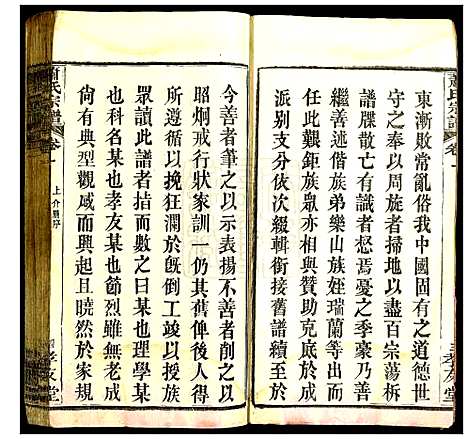 蕭氏宗譜
卷一
東漸敗常亂俗我中國固有之道德世
守之mu以周族者掃地以盡百宗蕩柝
譜牒散亡有識者惄焉憂之季豪乃善
繼善述偕族弟樂山族姪瑞蘭等出而
任此艱鉅族眾亦相與贊助克底於成
派別支分依次綴輯銜接舊譜續東
孝友堂
今善者筆之以示表揚不善者削之以
昭炯戒行狀家訓一仍其舊俾後人得
所遵循以挽狂瀾於既倒工竣以授族
眾讀此譜者拮而數之曰某也理學某
也科名某也孝友某也節烈雖無老成
尚有典型觀感而興起且曉然於家規
蕭氏宗譜
卷一
上介爵序
孝友堂